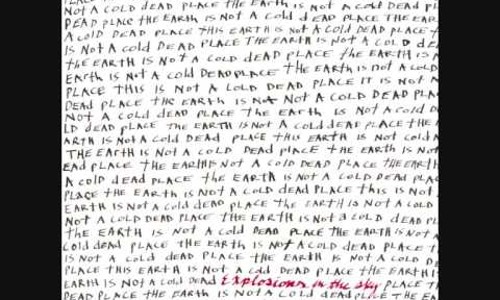 NOT A COLD DEAD PLACE THE EARTH IS NOT A COLD DEAD PL
DEAD PLACE THE EARTH IS NOT A COLD dEAD PLACE THE EAR
A COLD DEAD PLACE THIS EARTH IS NOT A COLD DEAD PLACE
IS NOT A COLD DEAD PLACE THE EARTH IS NOT A COLD DE
THE EARTH IS NOT A COLD dEAD PLACE THE EARTH IS
EARTH IS NOT A COLD DEAD PLACE THE EARTH IS NOT A COLD
PLACE THIS IS NOT A COLD DEAD PLACE IT IS NOT A
DEAD PLACE THE EARTH IS NOT A COLD DEAD PLA
NOT A COLD DEAD PLACE THE EARTH IS NOT A COLD D
LD DEAD PLACE THE EARTH IS NOT A COLD DEAD PLACE THE
ARTH IS NOT A COLD DEAD PLACE THIS EARTH IS NOT COLD
THE EARTH IS NOT A COLD DEAD PLACE THE EARTH IS NOT
EAD PLACE THE EARTH IS NOT A COLD DEAD PLACE THE EARTH
A COLD dEAD PLACE THE EARTH IS NOT A COLD DEAD PLA
PLACE THE EARTH IS NOT A COLD DEAD PLACE THIS IS NOT
EARTH IS NOT A COLD DEAD PLACE THE EARTH IS NOT A COLD
NOT A COLD DEAD PLACE THE EARTH IS NOT A COLD DEAD PL
THE EARTH IS NOT A COLD DEAD PLACE THE EARTH IS NOT A
COLD DEAD PLACE THE EARTH IS NOT A COLD DEAD PLACE T
IS NOT A COLD DEAD PLACE THE EARTH IS NOT A COLD DE
PLACE THIS EARTH IS NOT A COLD DEAD PLACE THE EARTH I
EARTH IS NOT A COLD DEAD Explosions in the sky PLACE T
DEAD PLACE THE EARTH IS NOT A COLD DEAD PLACE THE E